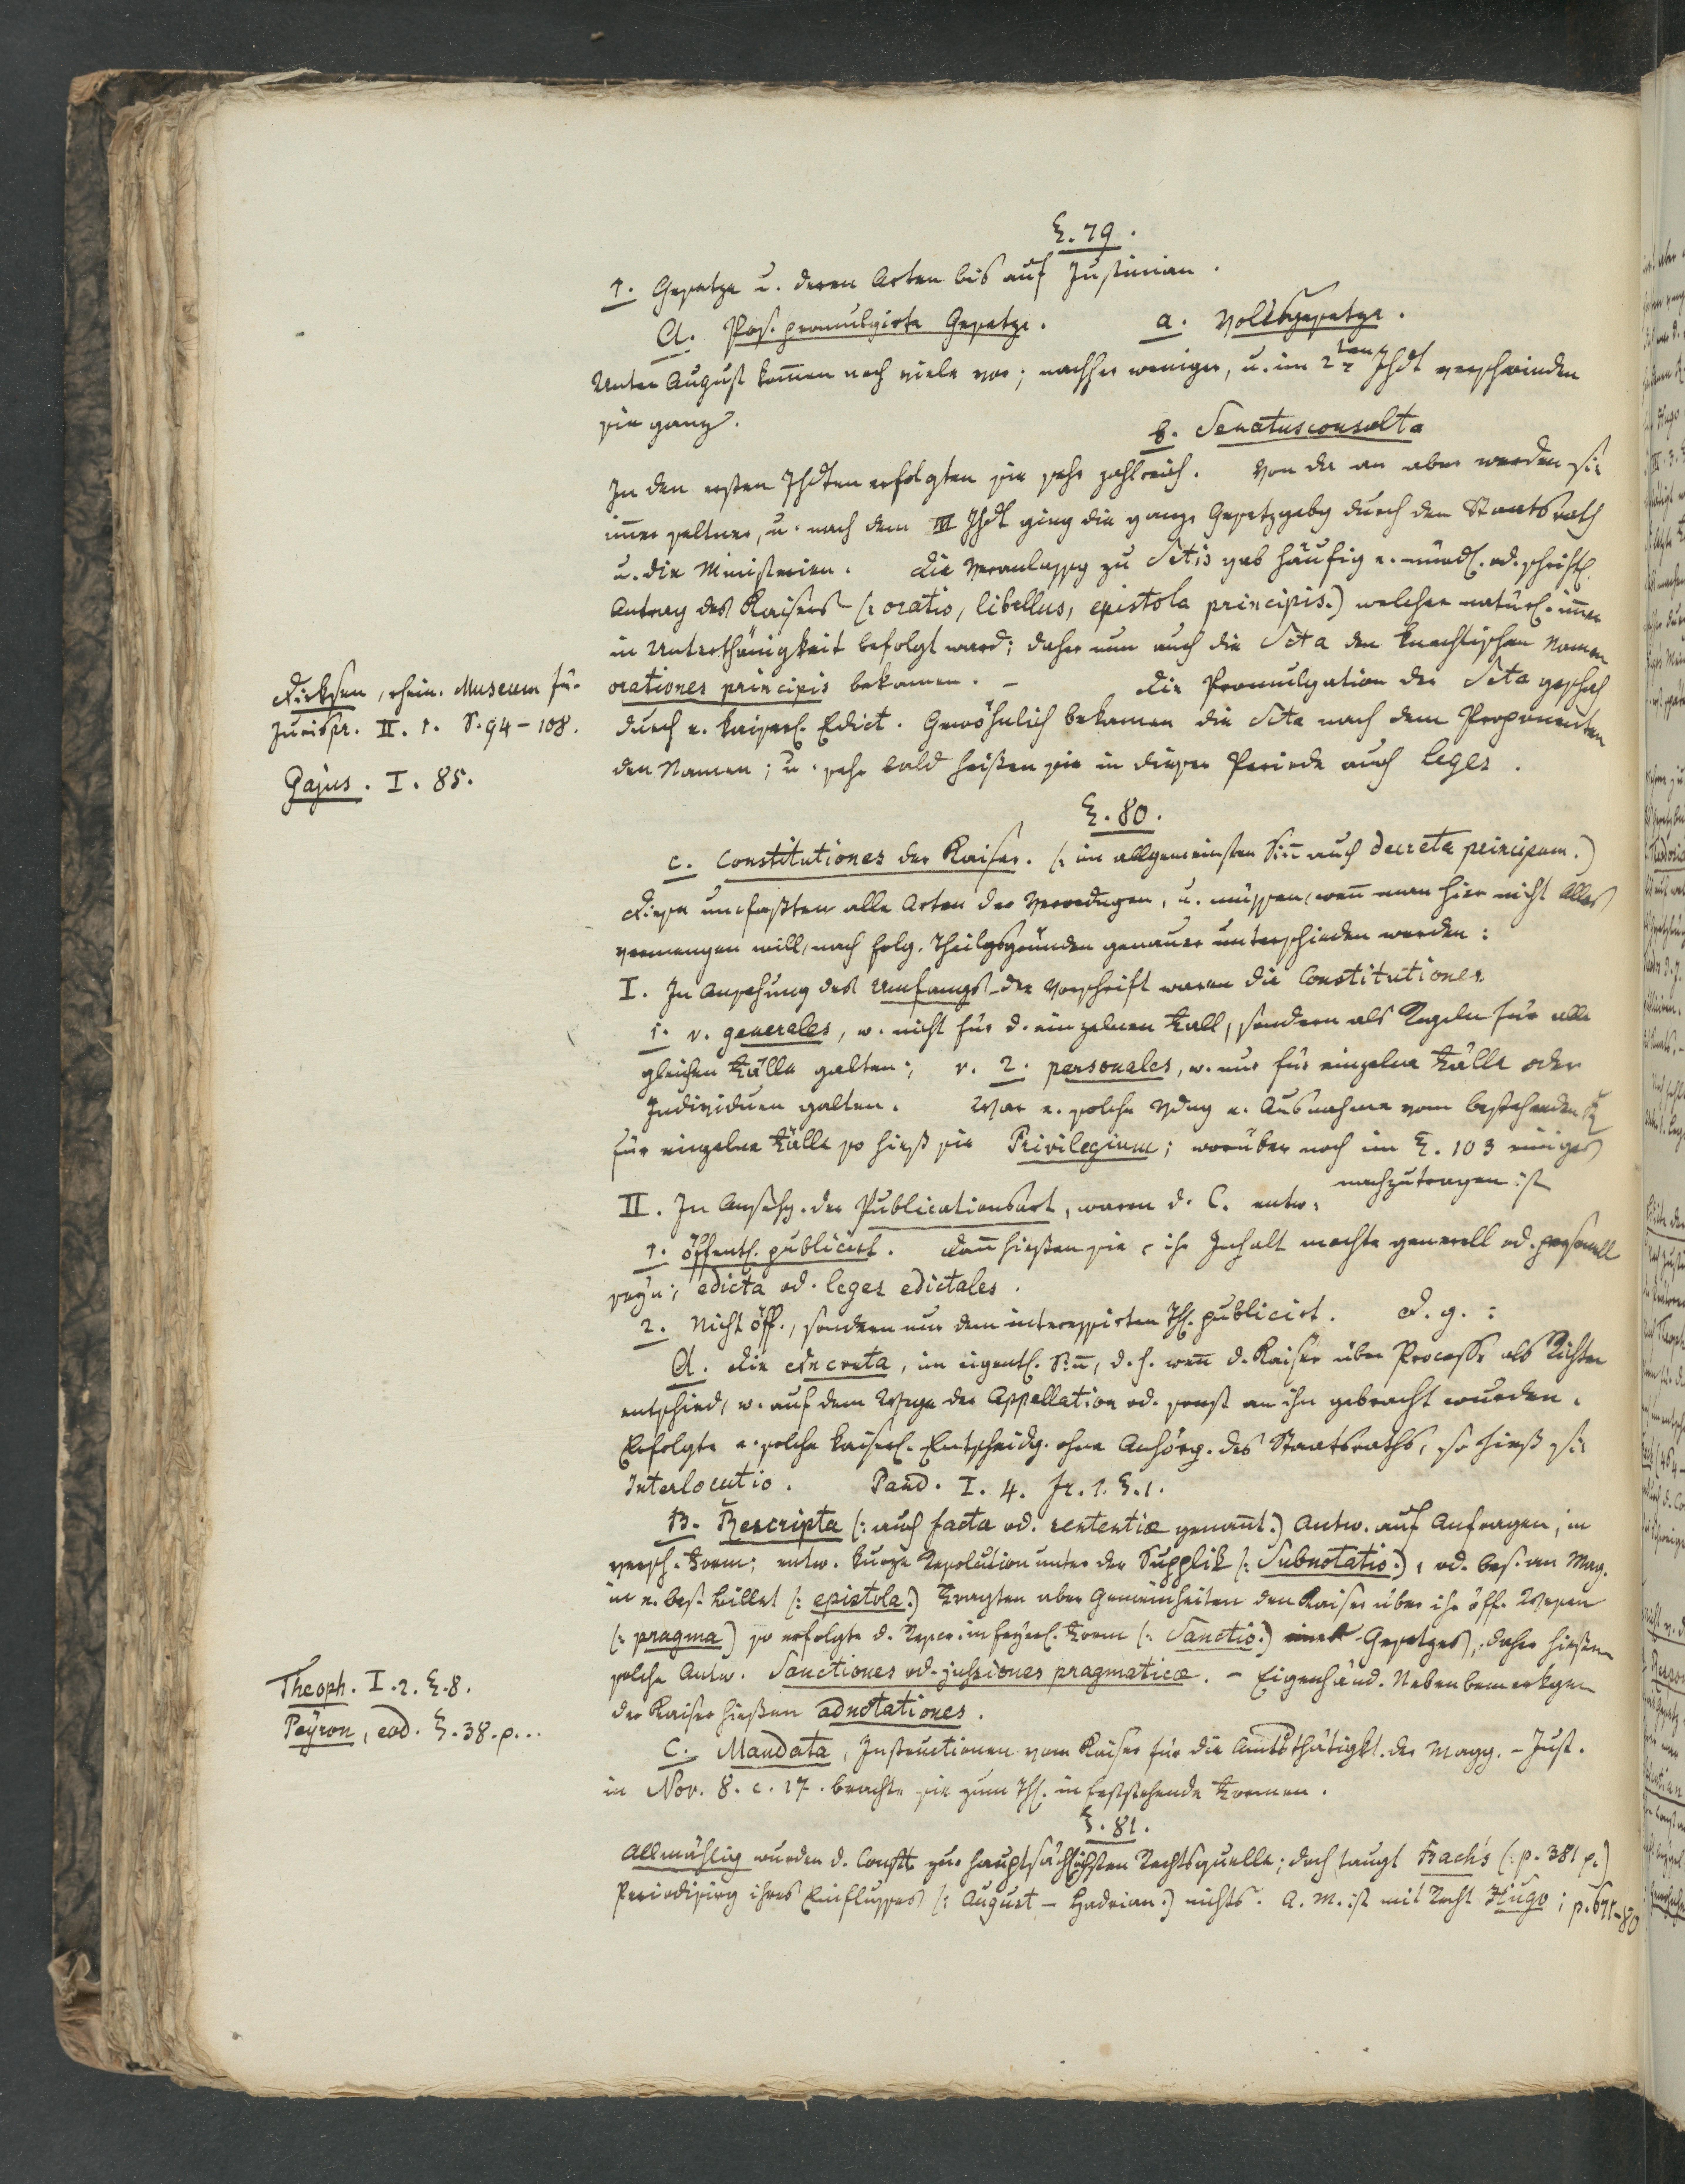 §. 79.
1. Gesetze u. deren Arten bis auf Justinian.
A. Pos. promulgirte Gesetze. a. Volksgesetze.
Unter August kom̄en noch viele vor; nachher weniger, u. im 2ten Jhdt verschwinden
sie ganz.
b. Senatusconsulta
In den ersten Jhdten erfolgten sie sehr zahlreich. Von da an aber werden sie
im̄er seltner, u. nach dem III Jhdt ging die ganze Gesetzgebg durch den Staatsrath
u. die Ministerien. Die Veranlassg zu Sctis gab häufig e. mündl. od. schriftl.
Antrag des Kaisers (: oratio, libellus, epistola principis.) welcher natürl. im̄er
in Unterthänigkeit befolgt ward; daher nun auch die Scta den knechtischen Namen
orationes principis bekamen. – Die Promulgation der Scta geschah
durch e. kaiserl. Edict. Gewöhnlich bekamen die Scta nach dem Proponenten
den Namen; u. sehr bald heißen sie in dieser Periode auch leges.
Dirksen, rhein. Museum für
Jurispr. II. 1. S. 94–108.
Gajus. I. 85.
§. 80.
c. Constitutiones der Kaiser. (: im allgemeinsten Sin̄ auch decreta principum.)
Diese umfaßten alle Arten der Verordngen, u. müssen, wen̄ man hier nicht Alles
vermengen will, nach folg. Theilgsgründen genauer unterschieden werden:
I. In Ansehung des Umfangs der Vorschrift waren die Constitutiones
1. v. generales, w. nicht für d. einzelnen Fall, sondern als Regeln für alle
gleichen Fälle galten; v. 2. personales, w. nur für einzelne Fälle oder
Individuen galten. War e. solche Vdng e. Ausnahme vom bestehenden R
für einzelne Fälle so hieß sie Privilegium; worüber noch im §. 103 einiges
nachzutragen ist
II. In Ansehg. der Publicationsart, waren d. C. entw.
1. öffentl. publicirt. Dan̄ hießen sie, ihr Inhalt mochte generell od. personell
seyn; edicta od. leges edictales.
2. Nicht öff., sondern nur dem interessirten Thl. publicirt. D. g.:
A. die decreta, im eigentl. Sin̄, d. h. wen̄ d. Kaiser über Processe als Richter
entschied, w. auf dem Wege der Appellation od. sonst an ihn gebracht wurden.
Erfolgte e. solche kaiserl. Entscheidg. ohne Anhörg. des Staatsraths, so hieß sie
Interlocutio. Pand. I. 4. fr. 1. §. 1.
B. Rescripta (: auch facta od. sententiæ genan̄t.) Antw. auf Anfragen, in
versch. Form; entw. kurze Resolution unter der Supplik (: Subnotatio.), od. bes. an Mag.
in e. bes. Billet (: epistola.) Fragten aber Gemeinheiten den Kaiser über ihr öff. Wesen
(: pragma) so erfolgte d. Rescr. in feyerl. Form (: Sanctio.) eines Gesetzes, daher hießen
solche Antw. Sanctiones od. jussiones pragmaticæ. – Eigenhänd. Nebenbemerkgen
der Kaiser hießen adnotationes.
Theoph. I. 2. §. 8.
Peyron, eod. §. 38. p...
C. Mandata, Instructionen vom Kaiser für die Amtsthätigkt. der Magg. – Just.
in Nov. 8. c. 17. brachte sie zum Thl. in feststehende Formen.
§. 81.
Allmählig wurden d. Constt. zur hauptsächlichsten Rechtsquelle; doch taugt Bach's (: p. 381 p.)
Periodisirg ihres Einflusses (: August – Hadrian.) nichts. A. M. ist mit Recht Hugo; p. 671–80